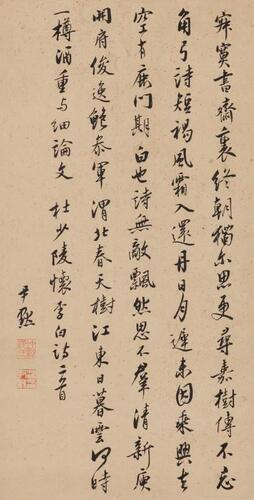 寂寞書齋裏終朝獨爾思更尋嘉樹傳不忘
角弓詩短褐風霜入還丹日月遲未因乘興去
空有鹿門期白也詩無敵飄然思不羣清新庾
開府俊逸鮑參軍渭北春天樹江東日暮雲何時
一樽酒重與細論文 杜少陵懷李白詩二首
尹默